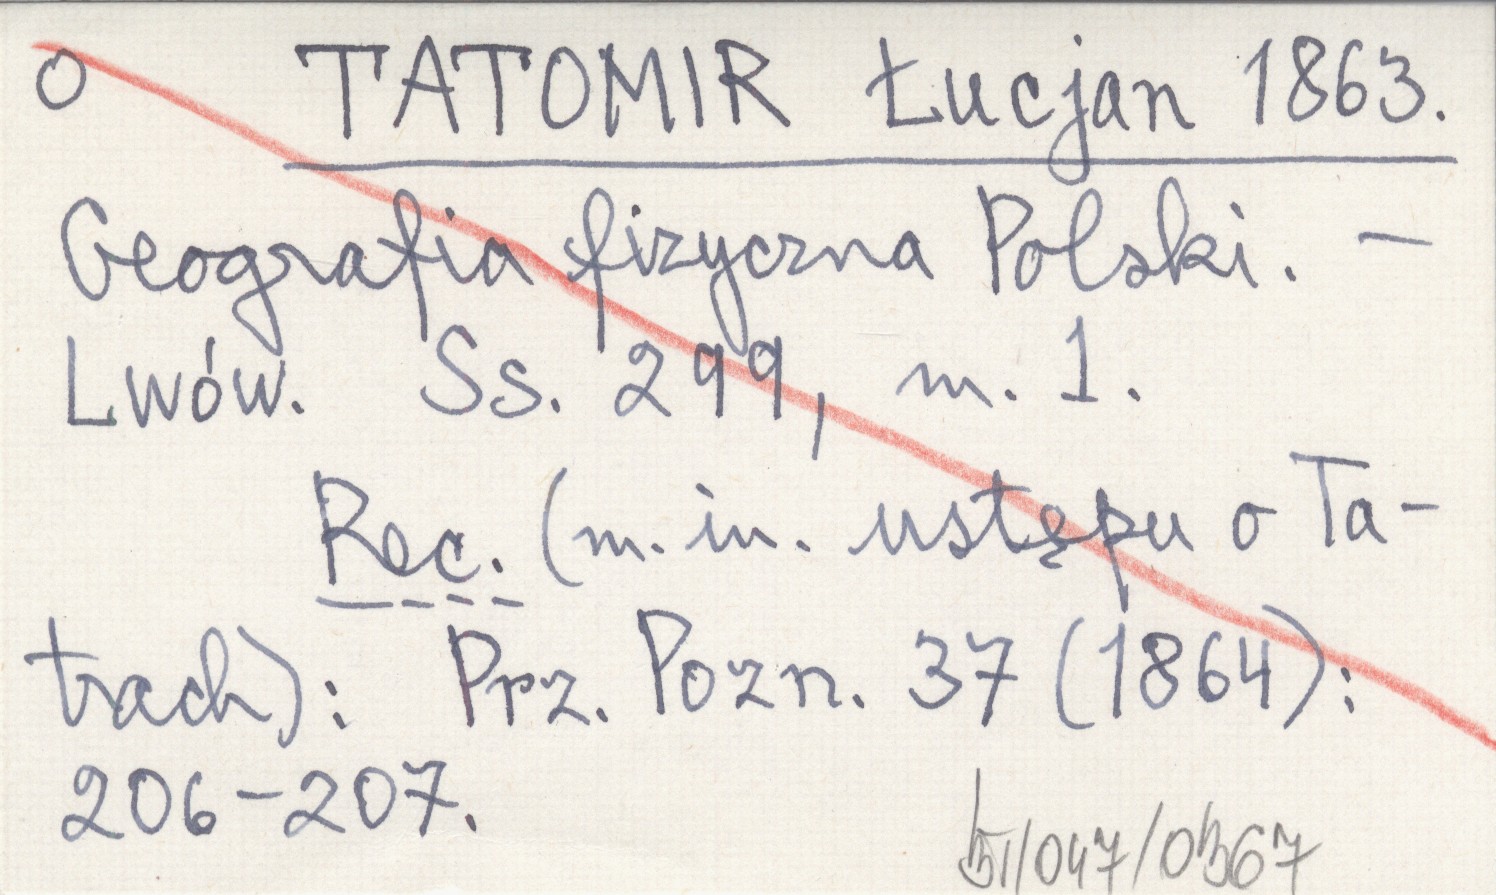 O TATOMIR Łucjan 1863.
Geografia fizyczna Polski. –
Lwów. Ss. 299, m. 1.
Rec. (m. in. ustępu o Ta-
trach): Prz. Pozn. 37 (1864):
206–207.